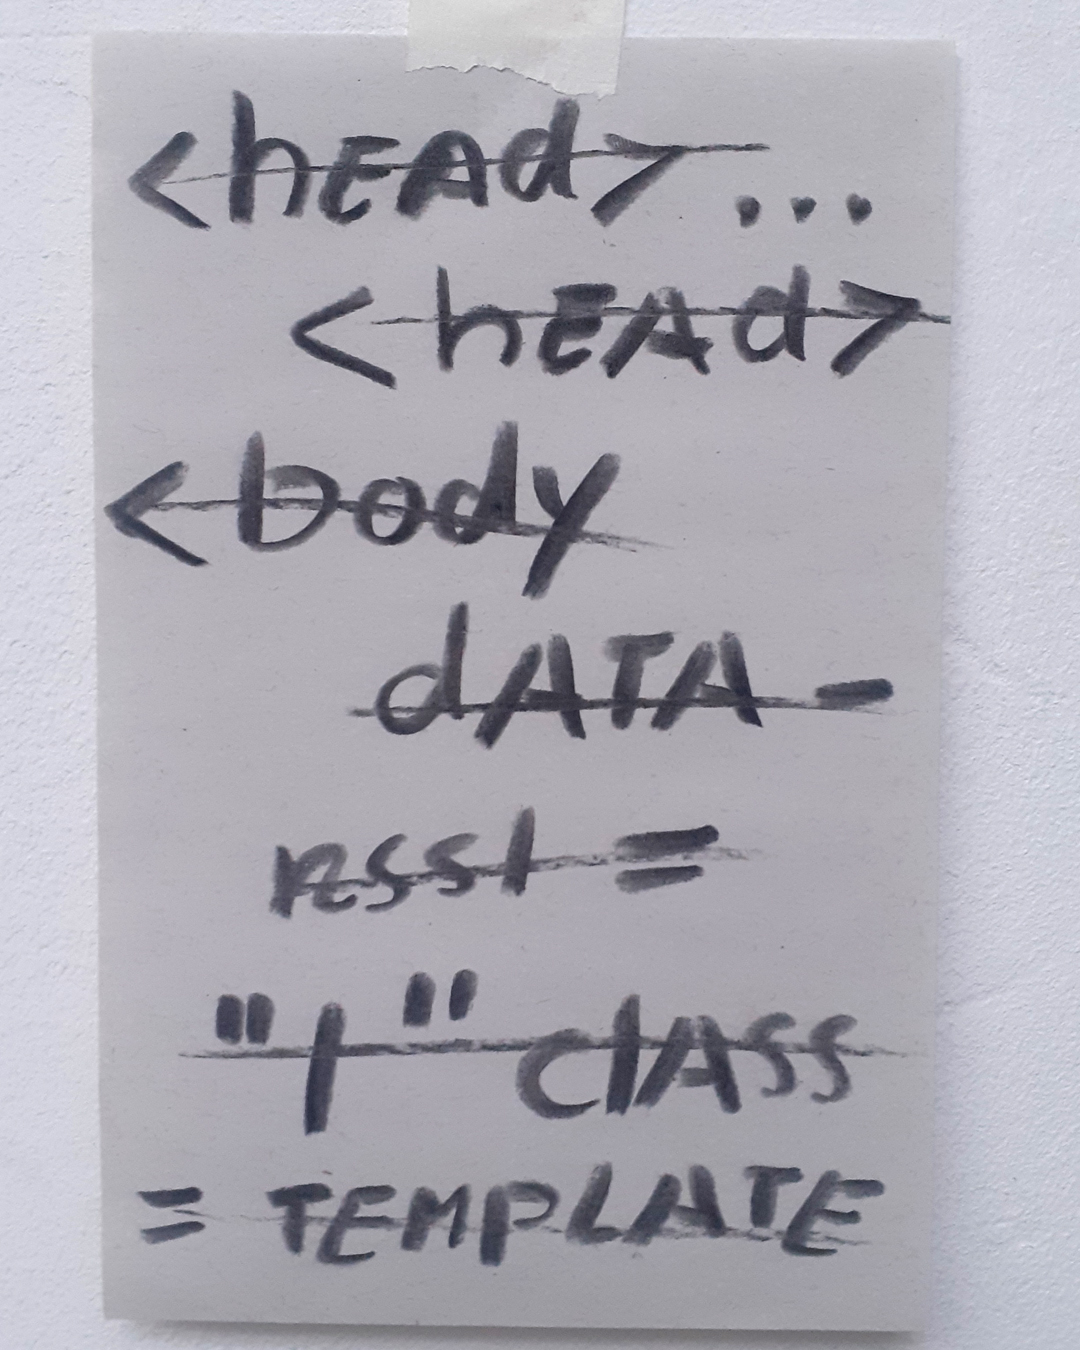 <hEAd>...
<hEAd>
<body
dATA-
rssl =
"1" clASS
= TEMPLATE